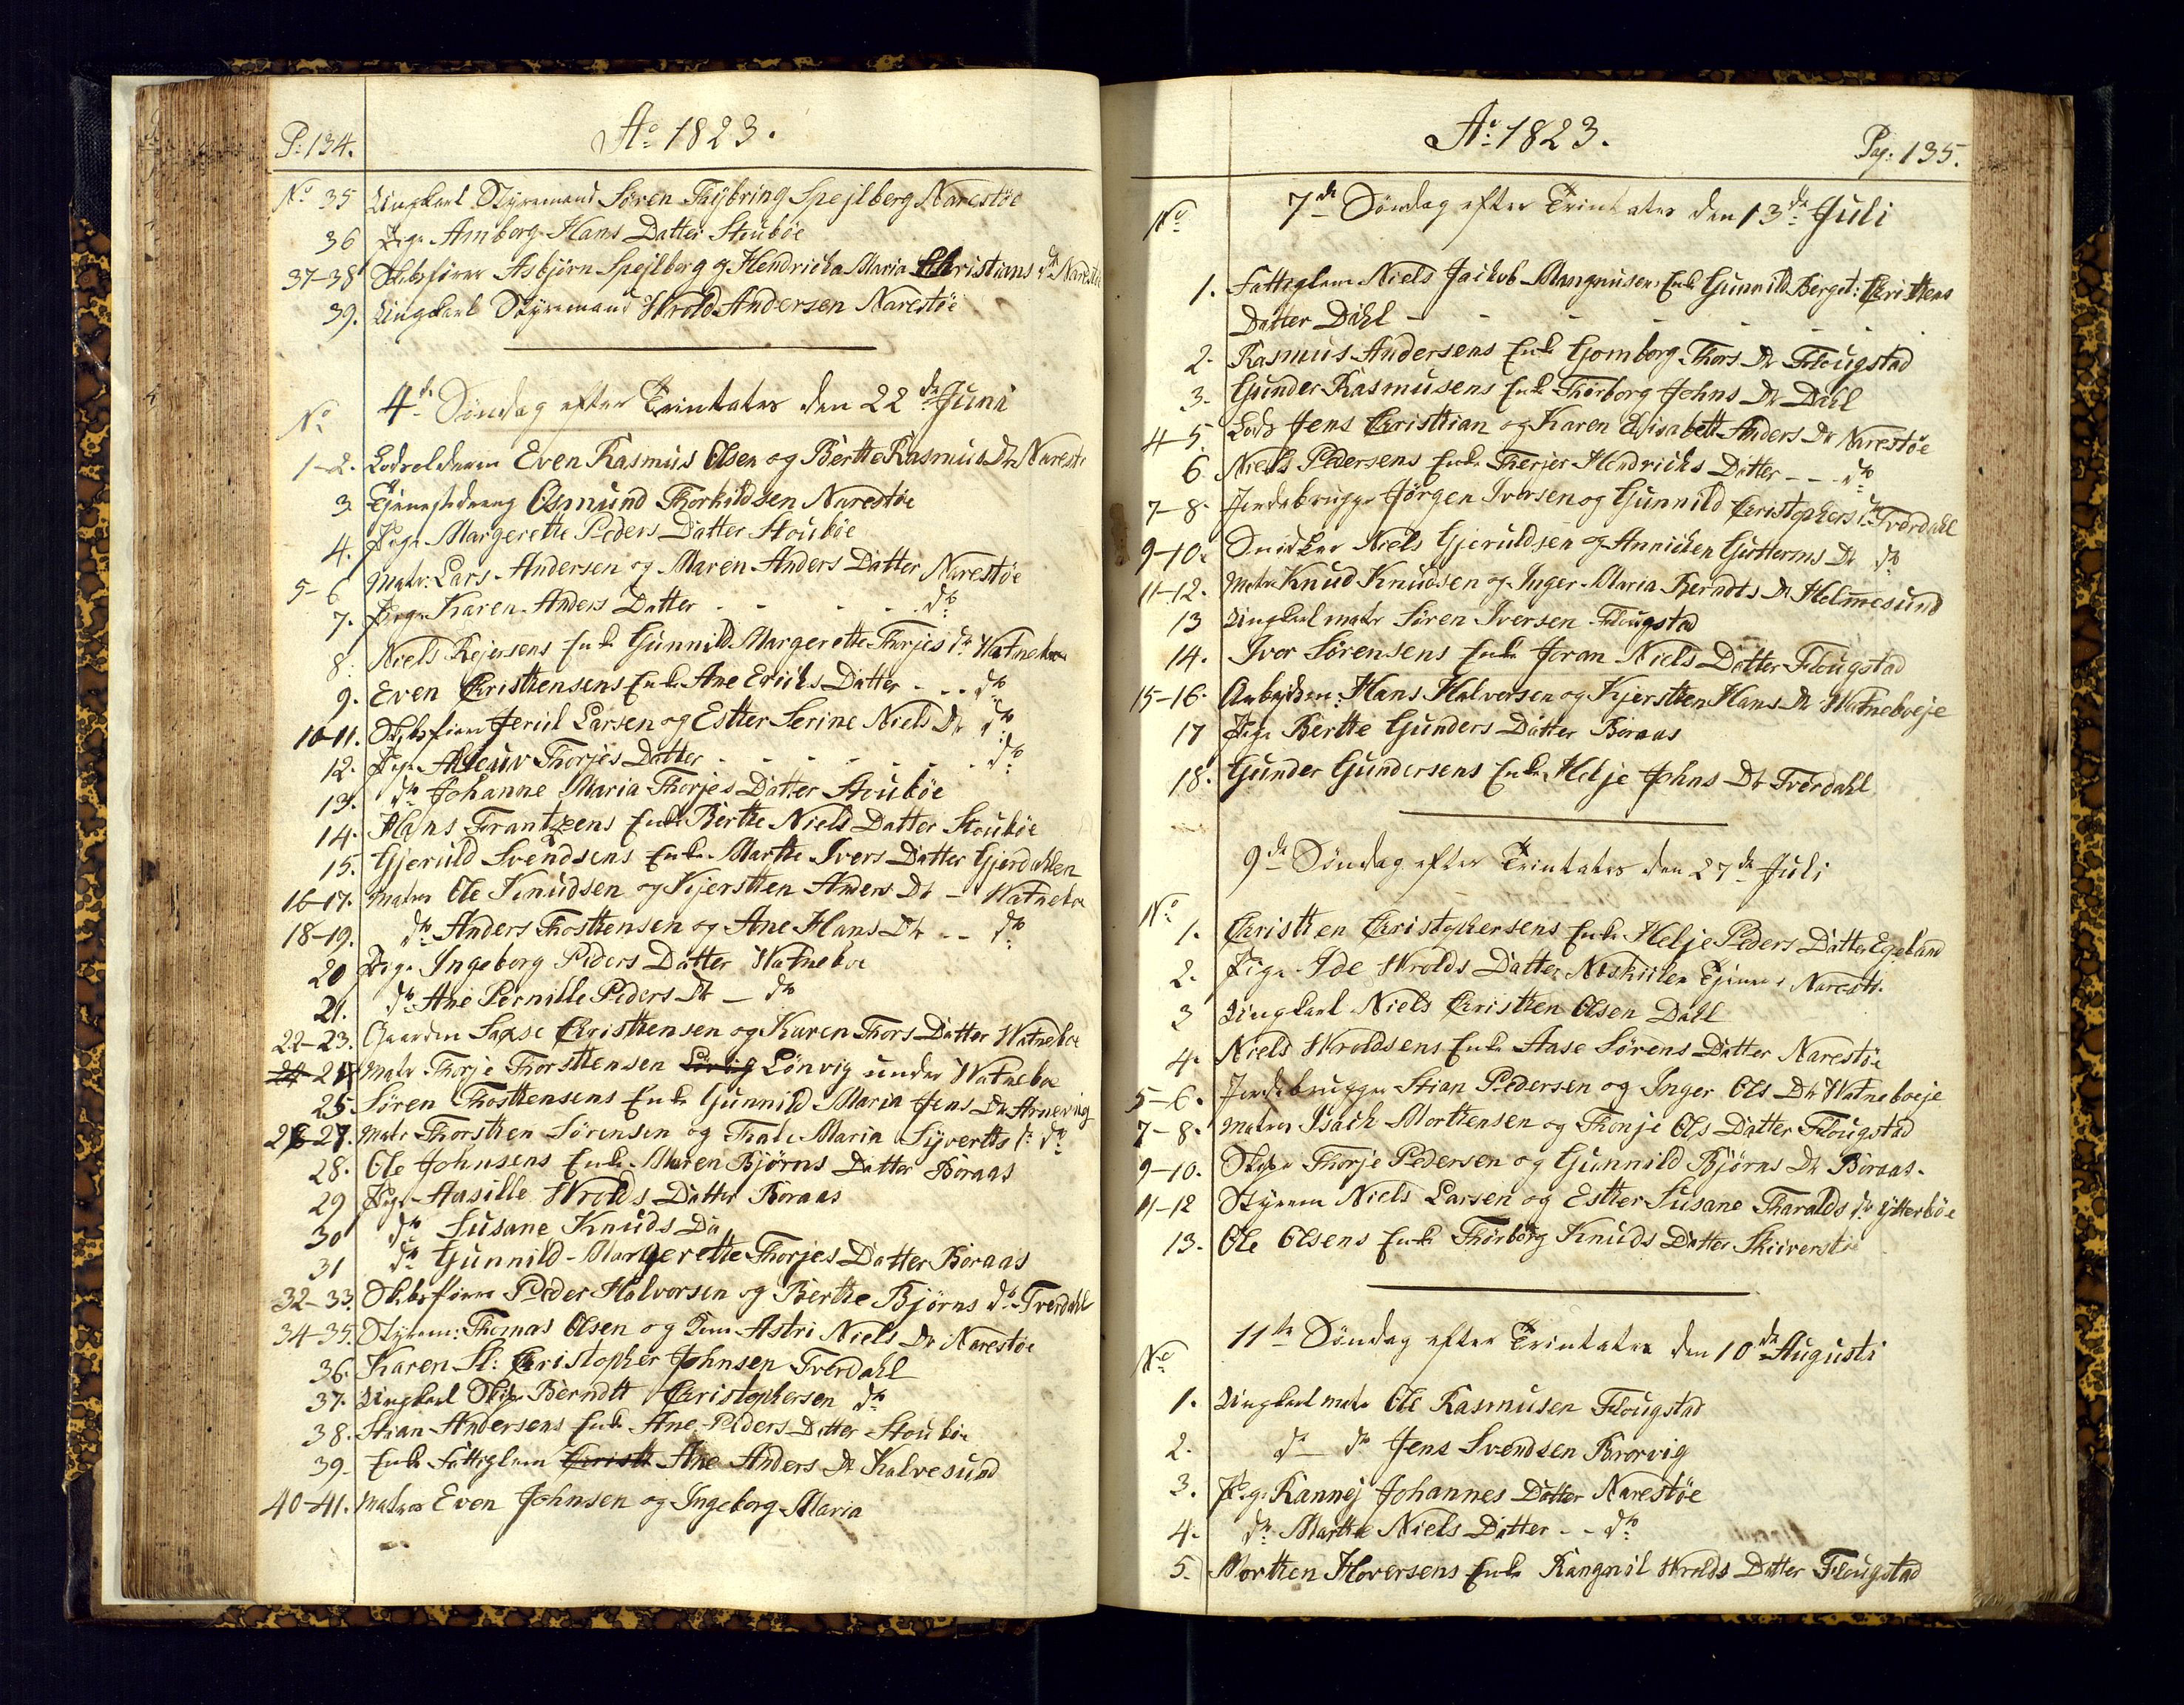 P: 134.
Ao 1823.
No 35 Ungkarl Styremand Søren Thÿbring Spejlberg Narestøe
36 Pige Amborg Hans Datter Stoubøe
37-38 Skibsfører Asbjørn Spejlberg og Hendricha Maria Christians Dr Narestøe
39. Ungkarl Styremand Wrold Andersen Narestøe
No 4de Søndag efter Trinitates den 22de Juni
1-2. Lodsoldermand Even Rasmus Olsen og Berthe Rasmus Dr Narestø
3 Tjenestedreng Osmund Thorkildsen Narestøe
4. Pige Margerette Peders Datter Stoubøe
5-6 Matr: Lars Andersen og Maren Anders Datter Narestøe
7. Pige Karen Anders Datter - - - - do
8. Niels Rejersens Enke Gunnild Margerette Thorjes Dr Watneboe
9. Even Christhensens Enke Ane Erichs Datter - - - do
10-11. Skibsfører Jerul Larsen og Esther Serine Niels Dr do
12. Pige Thorjes Datter - - - - - - do
13. do Johanne Maria Thorjes Datter Stoubøe
14. Hans Frantzens Enke Berthe Niels Datter Stoubøe
15. Gjeruld Svendsens Enke Marthe Ivers Datter Gjerdahlen
16-17. Matros Ole Knudsen og Kjersthen Anders Dr - Watneboe
18-19. do Anders Thosthensen og Ane Hans Dr - - do
20 Pige Ingeborg Peders Datter Watneboe
21. do Ane Pernille Peders Dr - do
22-23. Gaardm Saxse Christhensen og Karen Thors Datter Watneboe
24 Matr Thorje Thorsthensen Lönvig under Watneboe
25. Søren Thosthensens Enke Gunnild Maria Jens Dr Arnevig
26-27. Matr Thorsthen Sørensen og Thale Maria Sÿverths Dr do
28. Ole Johnsens Enke Maren Bjørns Datter Boraas
29 Pige Aasille Wrolds Datter Boraas
30 do Susane Knuds Da
31 do Gunnild Margerette Thorjes Datter Boraas
32-33. Skibsfører Peder Halvorsen og Berthe Bjørns Dr Tverdahl
34-35. Styrem: Thomas Olsen og Astri Niels Dr Narestøe
36. Karen Sl: Christopher Johnsen Tverdahl
37. Ungkarl Skipr Berndt Christophersen do
38. Stian Andersens Enke Ane Peders Datter Stoubøe
39. Enke Fattiglem Christh Ane Anders Dr Kalvesund
40-41. Matros Even Johnsen og Ingeborg Maria
Ao 1823.
Pag: 135.
No 7de Søndag efter Trinitates den 13de Juli
1. Fattiglem Niels Jackob Mangnusens Enke Gunnild Bergit: Christhens
Datter Dahl - - - - - - -
2. Rasmus Andersens Enke Gomborg Thors Dr Flougstad
3. Gunder Rasmusens Enke Thorborg Johns Dr Dahl
4-5. Lods Jens Christhian og Karen Elisabett Anders Dr Narestøe
6. Niels Pedersens Enke Therjer Hendrichs Datter - - - do
7-8. Jordebrugger Jørgen Iversen og Gunnild Christophers Dr Tverdahl
9-10. Snidker Niels Gjeruldsen og Annichen Gutterms Dr do
11-12. Matr Knud Knudsen og Inger Maria Berndts Dr Helmesund
13 Ungkarl matr Søren Iversen Flougstad
14. Iver Sørensens Enke Joran Niels Datter Flougstad
15-16. Arbejdsm: Hans Halvorsen og Kjersthen Hans Dr Watneboeje
17 Pige Berthe Gunders Datter Boraas
18. Gunder Gundersens Enke Helje Johns Dr Tverdahl
9de Søndag efter Trinitates den 27de Juli
No
1. Christhen Christophersens Enke Helje Peders Datter Egeland
2. Pige Ide Wrolds Datter Neskiilen Tjener i Narestø
3 Ungkarl Niels Christhen Olsen Dahl
4. Niels Wroldsens Enke Aase Sørens Datter Narestøe
5-6. Jordebrugger Stian Pedersen og Inger Ols Dr Watneboeje
7-8. Matros Isach Morthensen og Thonje Ols Datter Flougstad
9-10. Skipr Thorje Pedersen og Gunnild Bjørns Dr Boraas.
11-12 Styrem Niels Larsen og Esther Susane Tharalds Dr Ytterbøe
13. Ole Olsens Enke Thorborg Knuds Datter Skiverstøe
11te Søndag efter Trinitates den 10de Augusti
No
1. Ungkarl matr Ole Rasmusen Flougstad
2. do do Jens Svendsen Brorvig
3. Pige Rannej Johannes Datter Narestøe
4. do Marthe Niels Datter - - do
5. Morthen Hoversens Enke Rangnil Wrolds Datter Flougstad